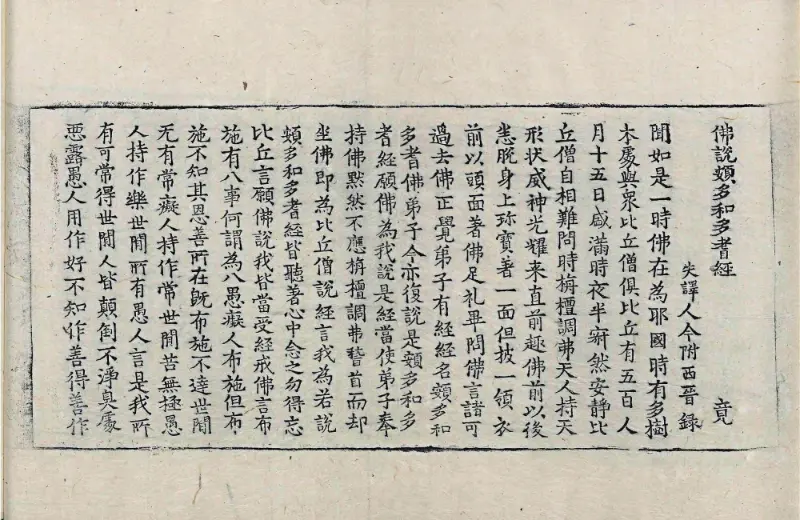 佛說頞多和多耆經
失譯人今附西晉錄 竟
聞如是一時佛在為耶國時有多樹
木處與衆比丘僧俱比丘有五百人
月十五日盛滿時夜半寂然安靜比
丘僧自相難問時栴檀調弗天人持天
形狀威神光耀来直前趣佛前以後
悉脫身上珎寶著一面但披一領衣
前以頭面著佛足礼畢問佛言諸可
過去佛正覺弟子有經經名頞多和
多耆佛弟子今亦復說是頞多和多
耆經願佛為我說是經當使弟子奉
持佛黙然不應栴檀調弗稽首而却
坐佛即為比丘僧說經言我為若說
頞多和多耆經皆聽著心中念之勿得忘
比丘言願佛說我皆當受經戒佛言布
施有八事何謂為八愚癡人布施但布
施不知其恩善所在既布施不達世閒
无有常癡人持作常世閒苦無極愚
人持作樂世閒所有愚人言是我所
有可常得世閒人皆顛倒不淨臭處
惡露愚人用作好不知作善得善作